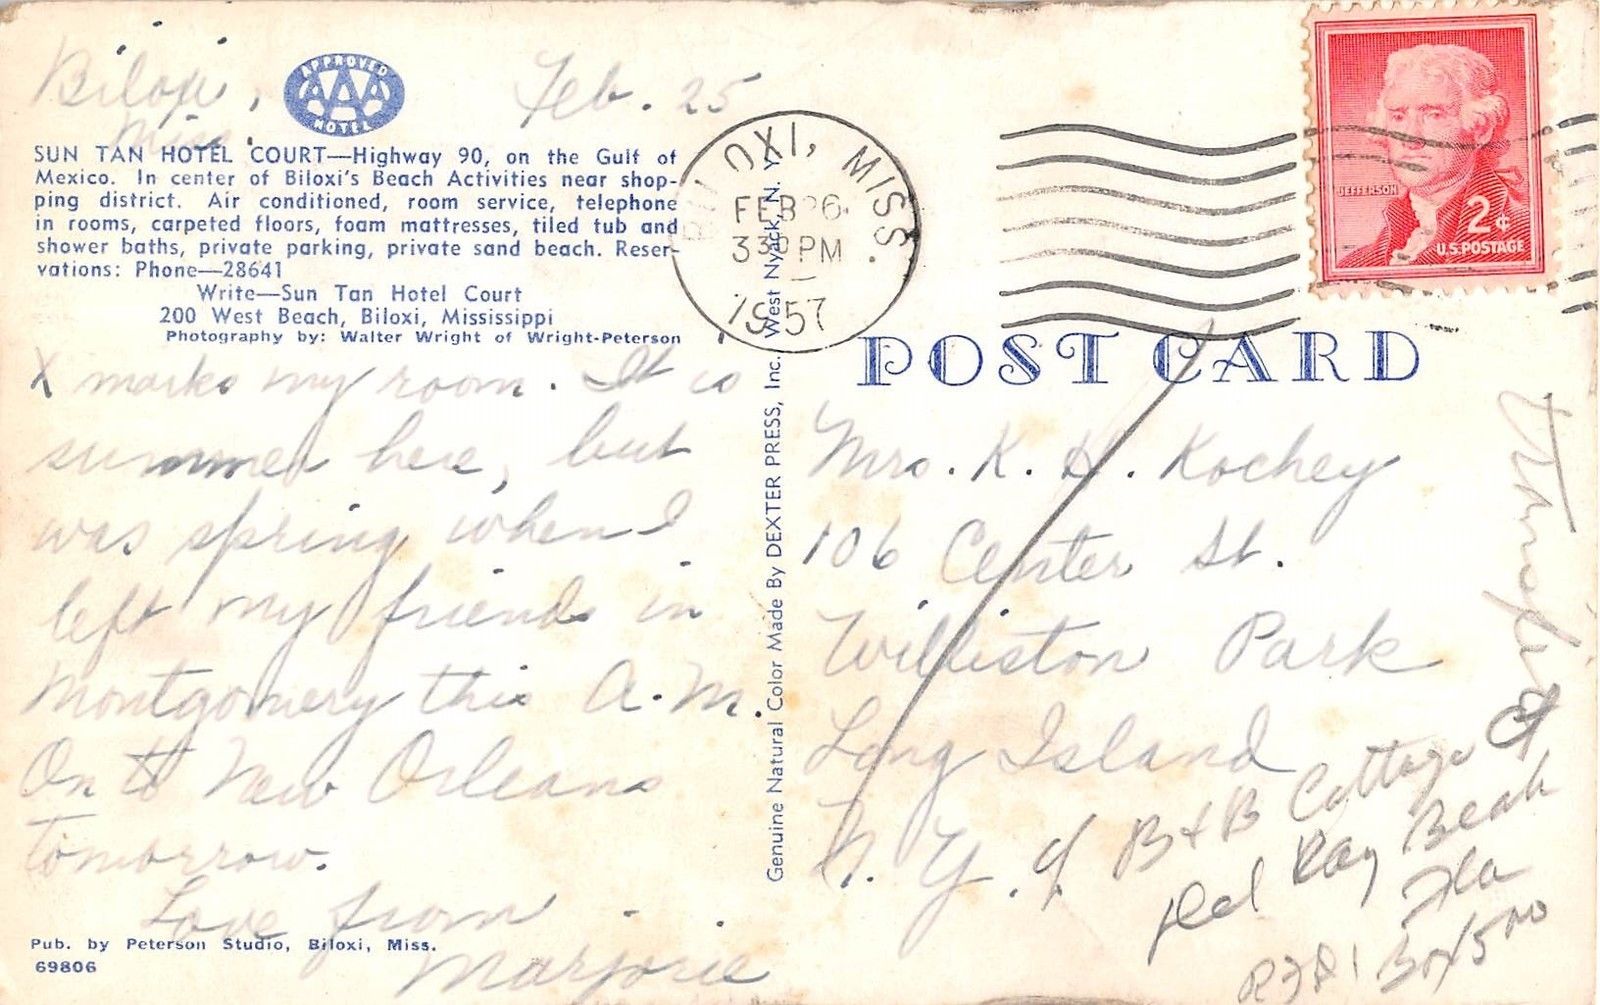 Biloxi, Feb. 25
Miss.
APPROVED
AAA
HOTEL
SUN TAN HOTEL COURT—Highway 90, on the Gulf of
Mexico. In center of Biloxi's Beach Activities near shop-
ping district. Air conditioned, room service, telephone
in rooms, carpeted floors, foam mattresses, tiled tub and
shower baths, private parking, private sand beach. Reser-
vations: Phone—28641
Write—Sun Tan Hotel Court
200 West Beach, Biloxi, Mississippi
Photography by: Walter Wright of Wright-Peterson
X marks my room. It is
summer here, but
was spring when I
left my friends in
Montgomery this A.M.
On to New Orleans
tomorrow.
Love from
Marjorie
Pub. by Peterson Studio, Biloxi, Miss.
69806
Genuine Natural Color Made By DEXTER PRESS, Inc. West Nyack, N. Y.
BILOXI, MISS.
FEB 26
330 PM
1957
JEFFERSON
2¢
U.S. POSTAGE
POST CARD
Mrs. K. H. Kochey
106 Center St.
Williston Park
Long Island
N. Y.
B & B Cottage
Del Ray Beach
Fla
Box 500